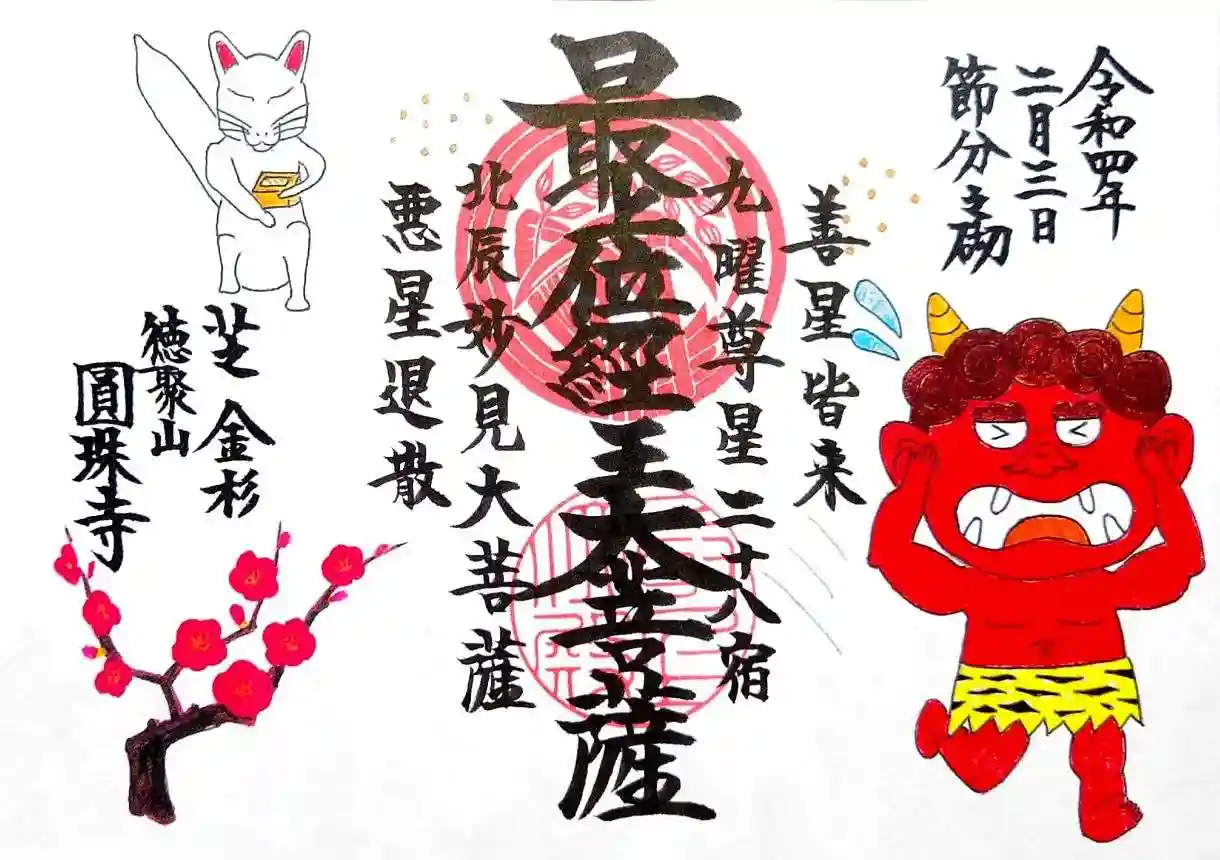 令和四年
二月三日
節分之砌
善星皆来
九曜尊星二十八宿
最位經王大菩薩
北辰妙見大菩薩
悪星退散
芝金杉
徳聚山
圓珠寺